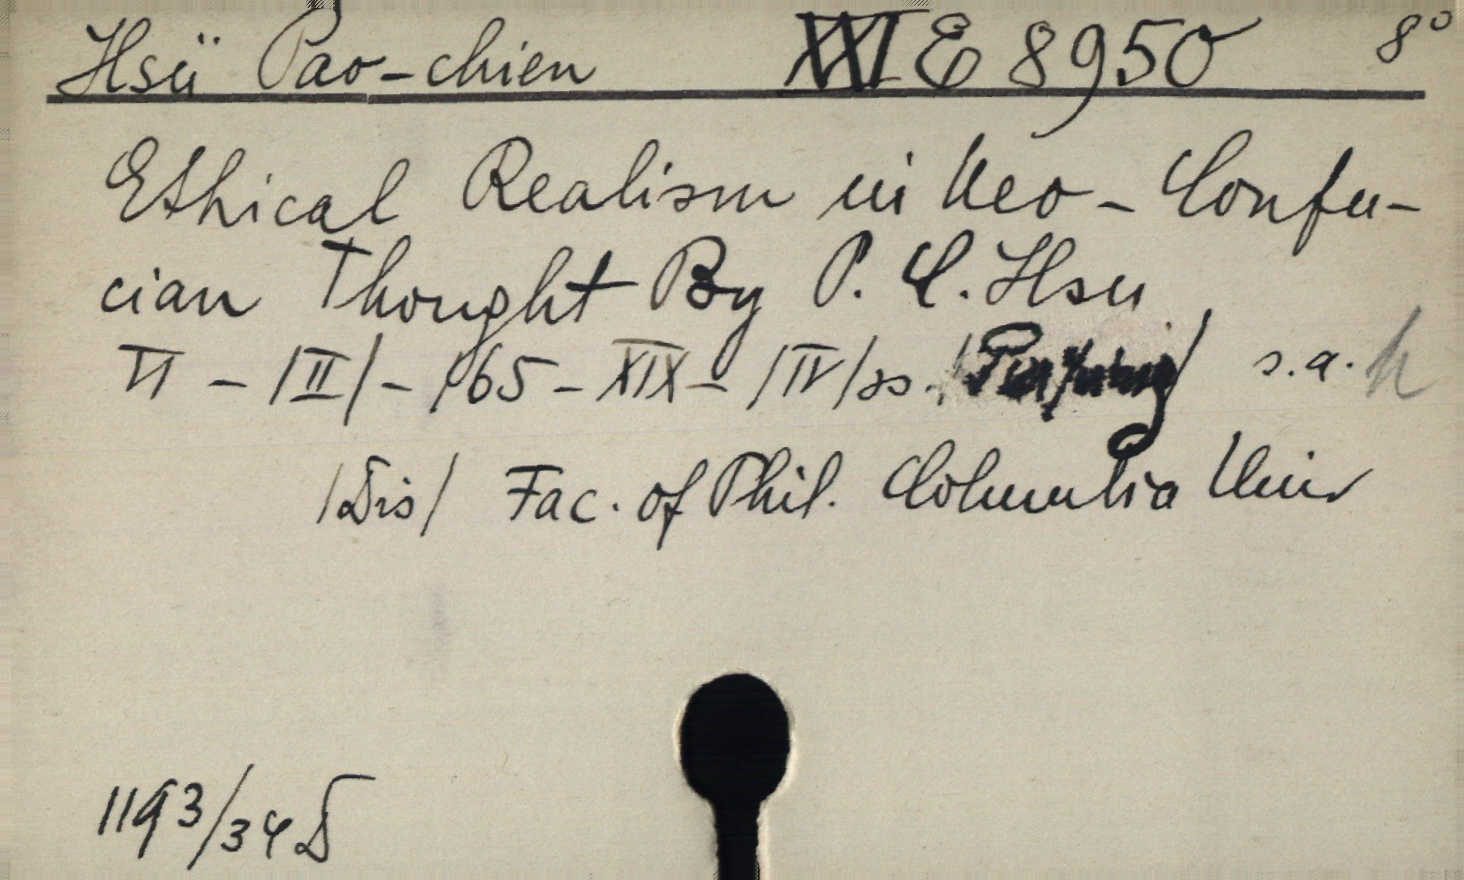 Hsü Pao-chien XXI E 8950 8°
Ethical Realism in Neo-Confu-
cian Thought By P. C. Hsu
VI - /II/ - 165 - XIX - /IV/ss. s.a.
/Dis/ Fac. of Phil. Columbia Univ
1193/34 D